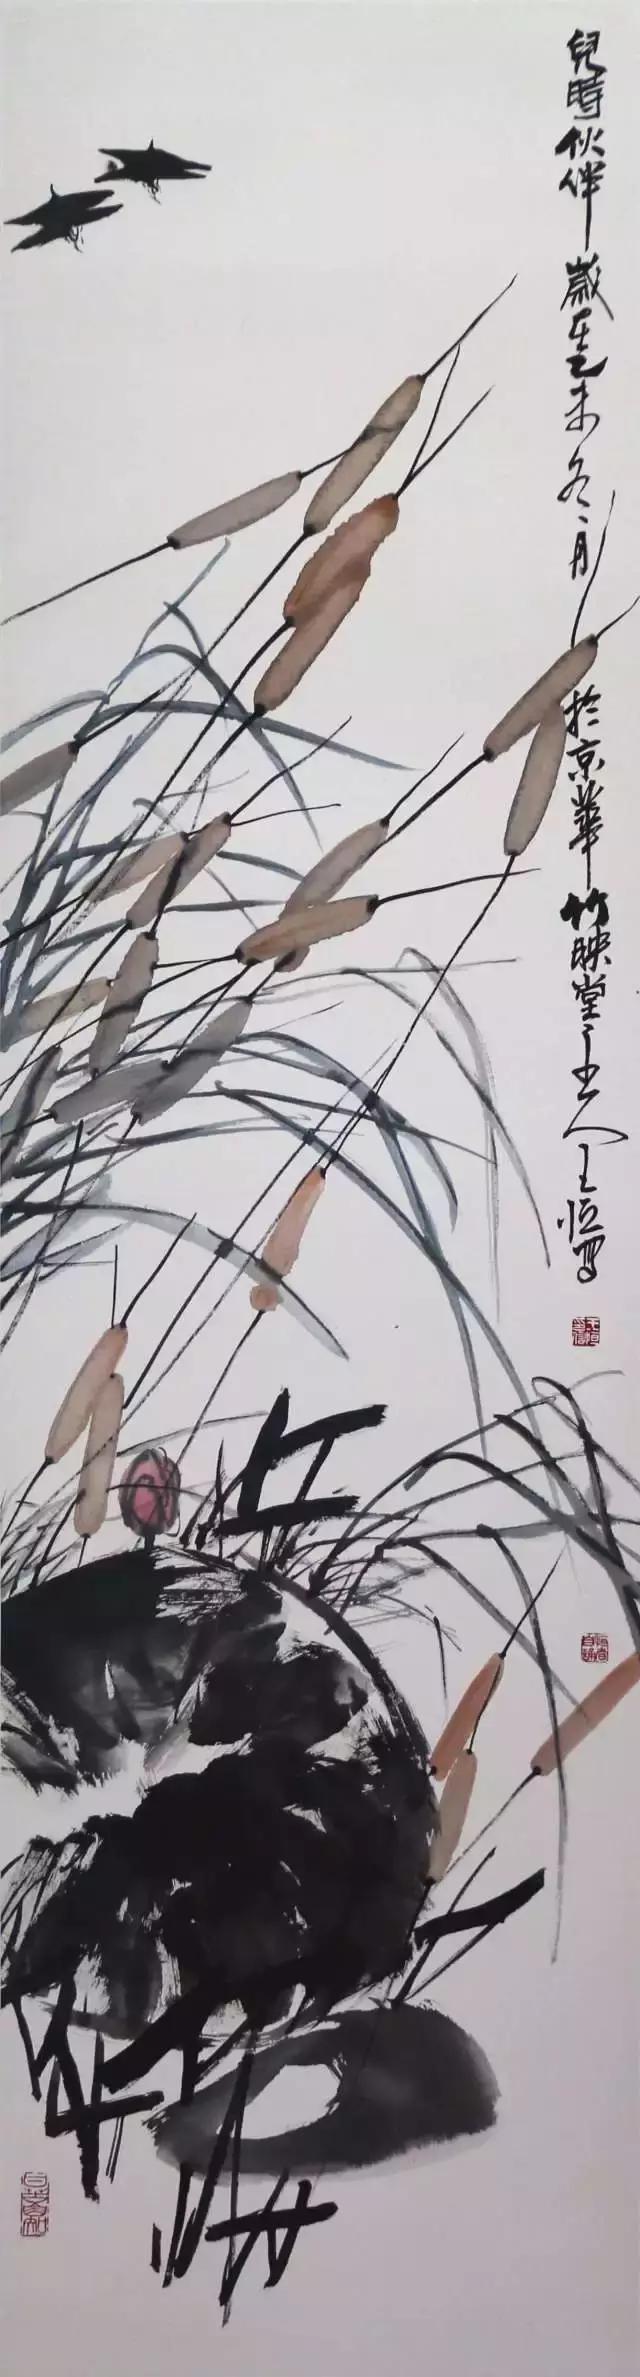 兒時伙伴歲在乙未冬月於京華竹映堂主人王恒寫